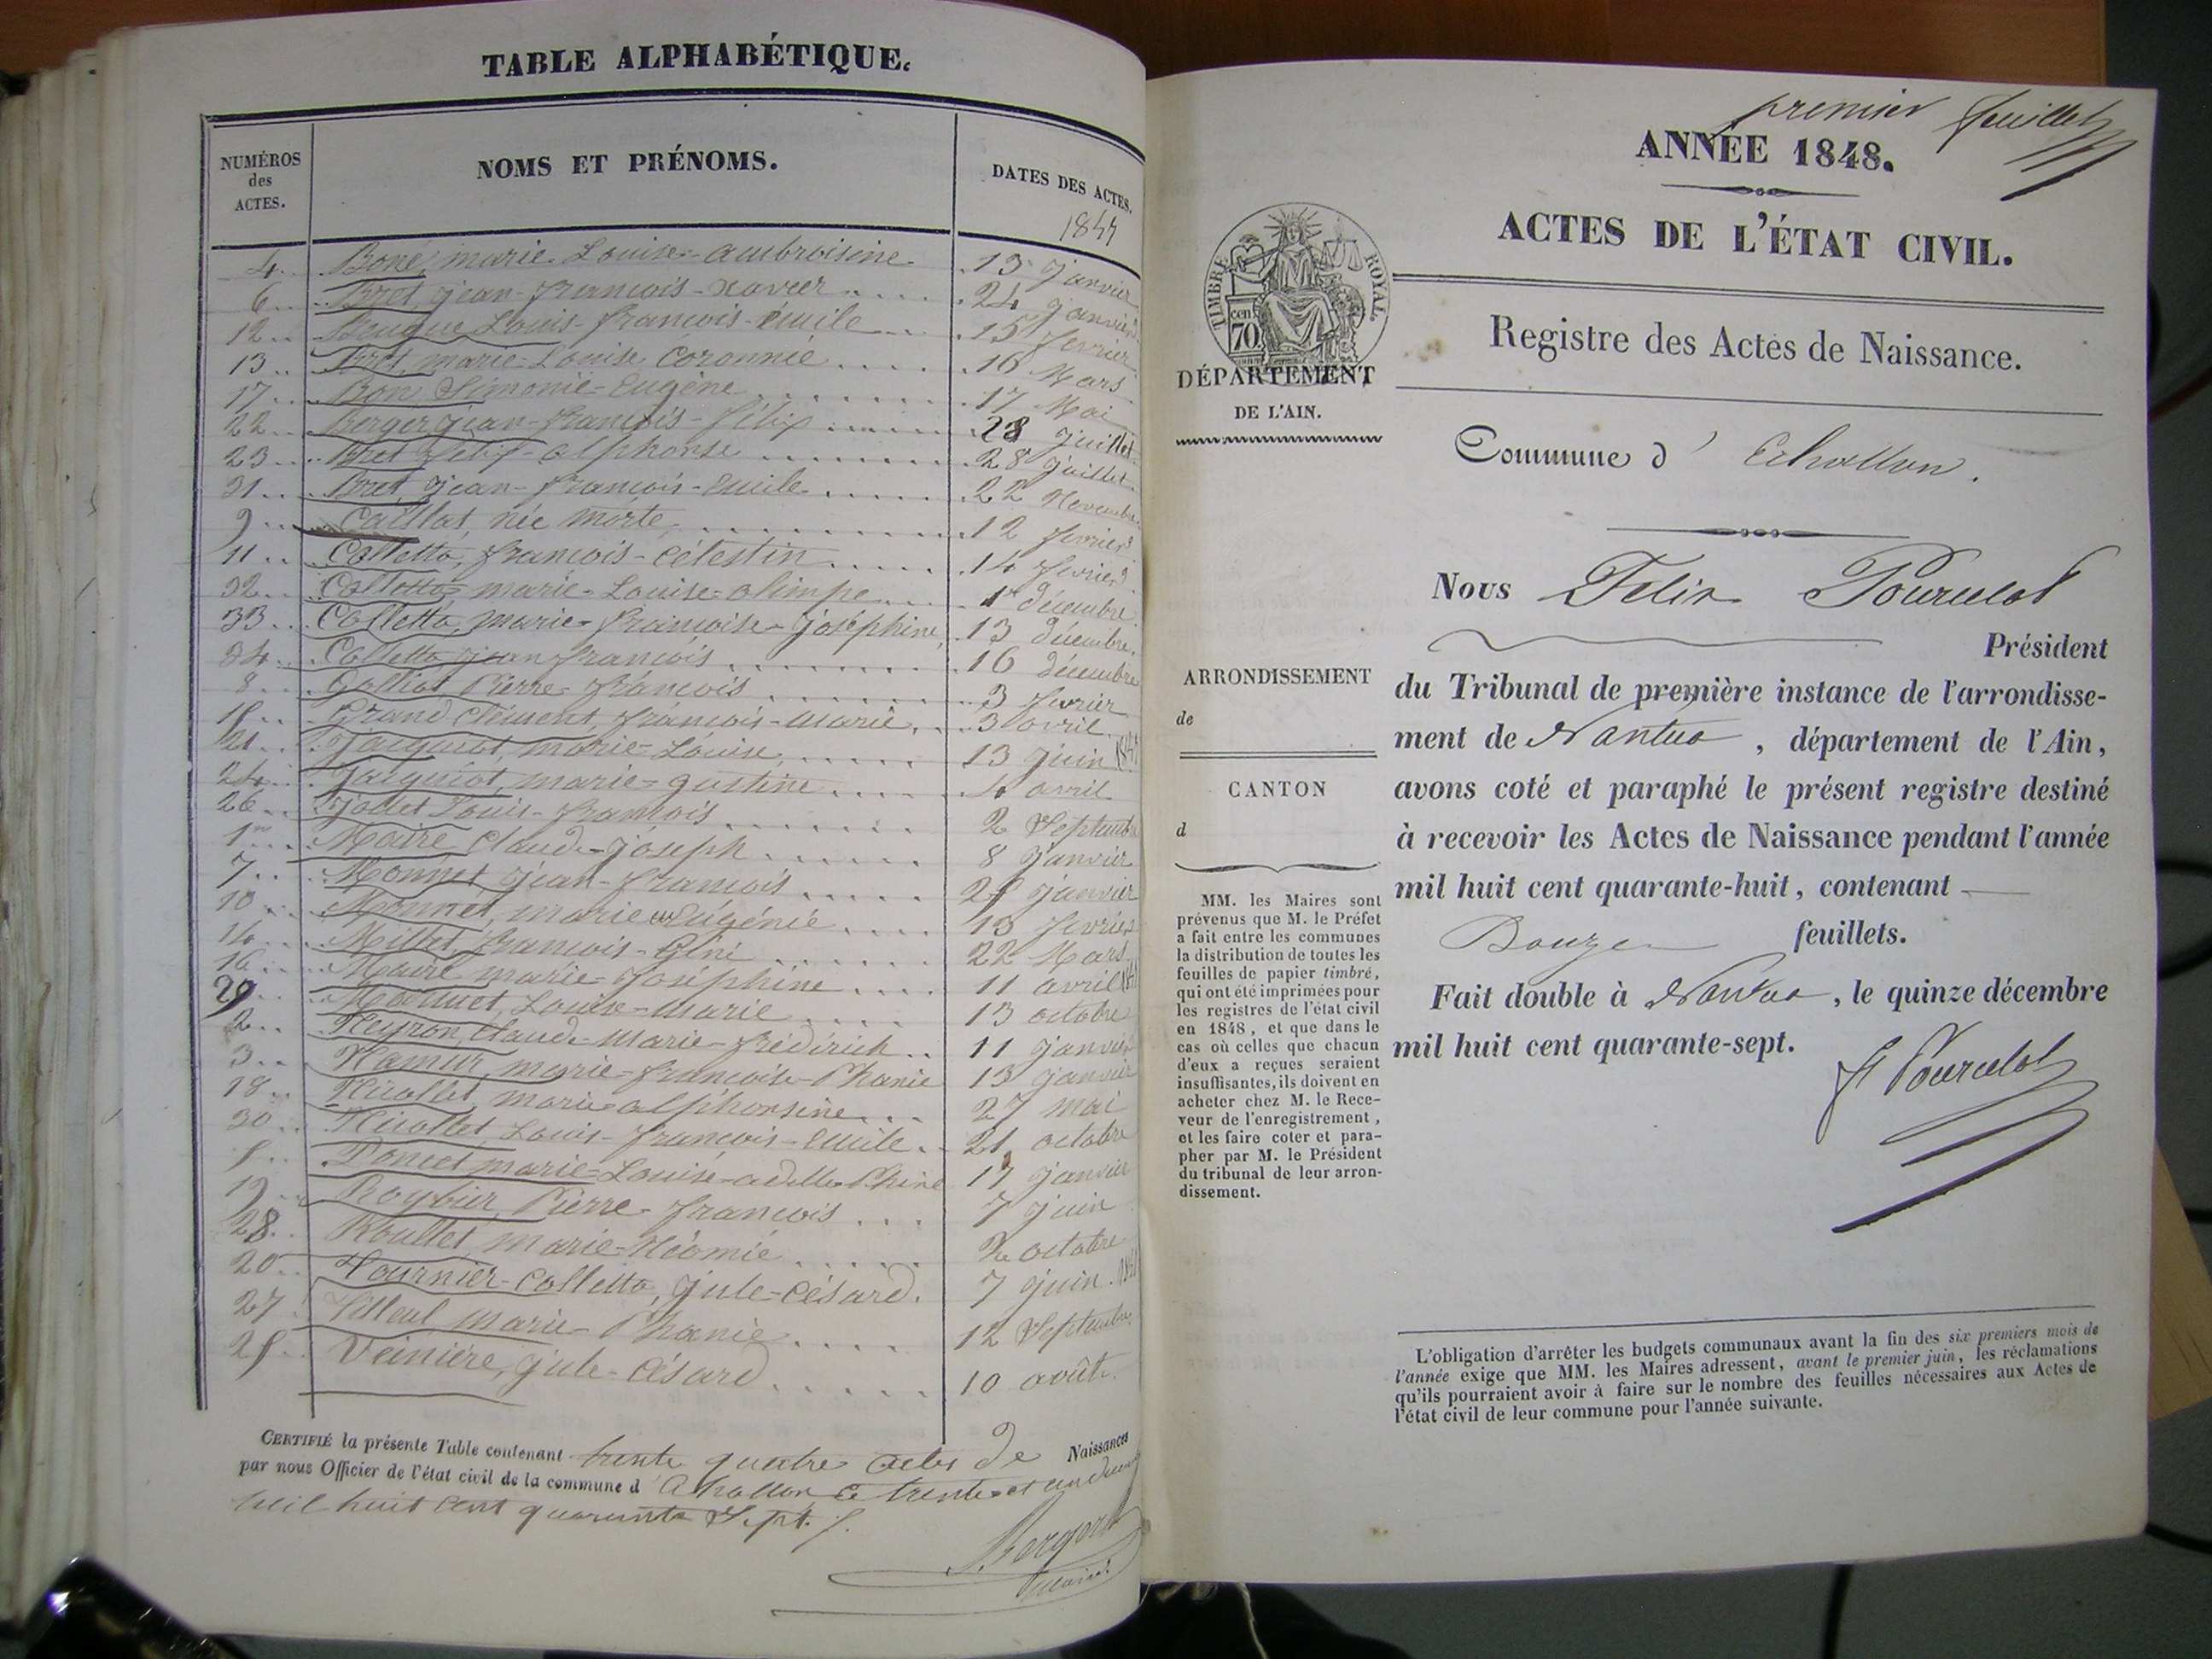 TABLE ALPHABÉTIQUE.
NUMÉROS des ACTES.
NOMS ET PRÉNOMS.
DATES DES ACTES.
1847
4 Boné, marie Louise-ambroisine 13 janvier
6 Bret, jean-françois-xavier 24 janvier
12 Louis-françois-émile 15 fevrier
13 Bret, marie-Louise 16 Mars
17 Bon Eugène 17 Mai
22 Berger jean-françois-félix 28 juillet
23 Bret félix-alphonse 28 juillet
31 Bret, jean-françois-émile 22 Novembre
9 Caillat, née morte 12 fevrier
11 Colletta, françois-célestin 14 fevrier
32 Colletta marie-Louise-olimpe 1er décembre
33 Colletta, marie-françoise-joséphine, 13 décembre
34 Colletta jean françois 16 décembre
8 Golliat Pierre-françois 3 fevrier
15 Grand Clément, françois-marie 3 avril
21 Jacquiot, marie-Louise 13 juin
24 Jacquiot, marie-justine 4 avril
26 Jollet Louis-françois 2 Septembre
1er Maire Claude-joseph 8 janvier
7 Monnet jean-françois 25 janvier
10 Monnet, marie Eugénie 13 fevrier
14 Millet, françois 22 Mars
16 Maire marie-Joséphine 11 avril
29 Louise-marie 13 octobre
2 Neyron, Claude-Marie-frédérick 11 janvier
3 marie-françoise-Phanie 13 janvier
18 Nicollet, marie alphonsine 27 mai
30 Nicollet Louis-françois-émile 21 octobre
5 Poncet marie-Louise 17 janvier
19 Roybier, Pierre-françois 7 juin
28 Roullet, marie-Néomie 2 octobre
20 Tournier-Colletta, jule-César 7 juin
27 Marie-Phanie 12 Septembre
25 jule-César 10 août
CERTIFIÉ la présente Table contenant trente quatre actes de Naissances
par nous Officier de l'état civil de la commune d'Echallon ce trente et un
mil huit cent quarante Sept
Berger
maire
premier feuillet
ANNÉE 1848.
ACTES DE L'ÉTAT CIVIL.
TIMBRE ROYAL
70 cen
Registre des Actes de Naissance.
DÉPARTEMENT
DE L'AIN.
Commune d'Echallon.
Nous Félix Pourcelot
Président
ARRONDISSEMENT
de
CANTON
d
du Tribunal de première instance de l'arrondisse-
ment de Nantua, département de l'Ain,
avons coté et paraphé le présent registre destiné
à recevoir les Actes de Naissance pendant l'année
mil huit cent quarante-huit, contenant
Douze feuillets.
Fait double à Nantua, le quinze décembre
mil huit cent quarante-sept.
F Pourcelot
MM. les Maires sont
prévenus que M. le Préfet
a fait entre les communes
la distribution de toutes les
feuilles de papier timbré,
qui ont été imprimées pour
les registres de l'état civil
en 1848, et que dans le
cas où celles que chacun
d'eux a reçues seraient
insuffisantes, ils doivent en
acheter chez M. le Rece-
veur de l'enregistrement,
et les faire coter et para-
pher par M. le Président
du tribunal de leur arron-
dissement.
L'obligation d'arrêter les budgets communaux avant la fin des six premiers mois de
l'année exige que MM. les Maires adressent, avant le premier juin, les réclamations
qu'ils pourraient avoir à faire sur le nombre des feuilles nécessaires aux Actes de
l'état civil de leur commune pour l'année suivante.